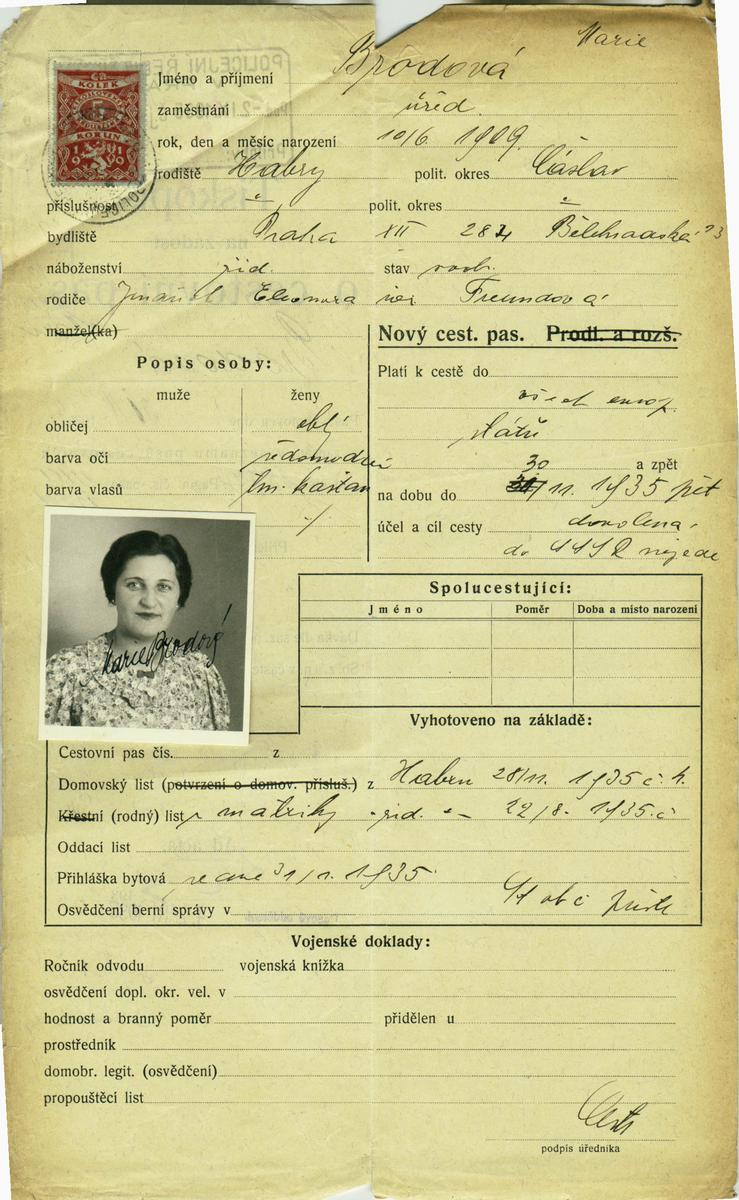 Marie
Jméno a příjmení Brodová
zaměstnání úřed.
rok, den a měsíc narození 10/6. 1909.
rodiště Habry polit. okres Čáslav
příslušnost „ polit. okres „
bydliště Praha XII 28 Bělehradská
náboženství žid. stav
rodiče Eleonora roz. Freundová
manžel(ka)
KOLEK
KORUN
1919
Nový cest. pas. Prodl. a rozš.
Popis osoby:
muže ženy
obličej obl.
barva očí šedomodré
barva vlasů tm. kaštan
Platí k cestě do
všech evrop.
států
30 a zpět
na dobu do 11. 1935 pět
účel a cíl cesty dovolená,
do SSSR nejede
Marie Brodová
Spolucestující:
Jméno Poměr Doba a místo narození
Vyhotoveno na základě:
Cestovní pas čís. z
Domovský list (potvrzení o domov. přísluš.) z Habrů 28/11. 1935 č.
Křestní (rodný) list z matriky žid. 22/8. 1935 č
Oddací list
Přihláška bytová ze dne 31/1. 1935.
Osvědčení berní správy v
Vojenské doklady:
Ročník odvodu vojenská knížka
osvědčení dopl. okr. vel. v
hodnost a branný poměr přidělen u
prostředník
domobr. legit. (osvědčení)
propouštěcí list
podpis úředníka